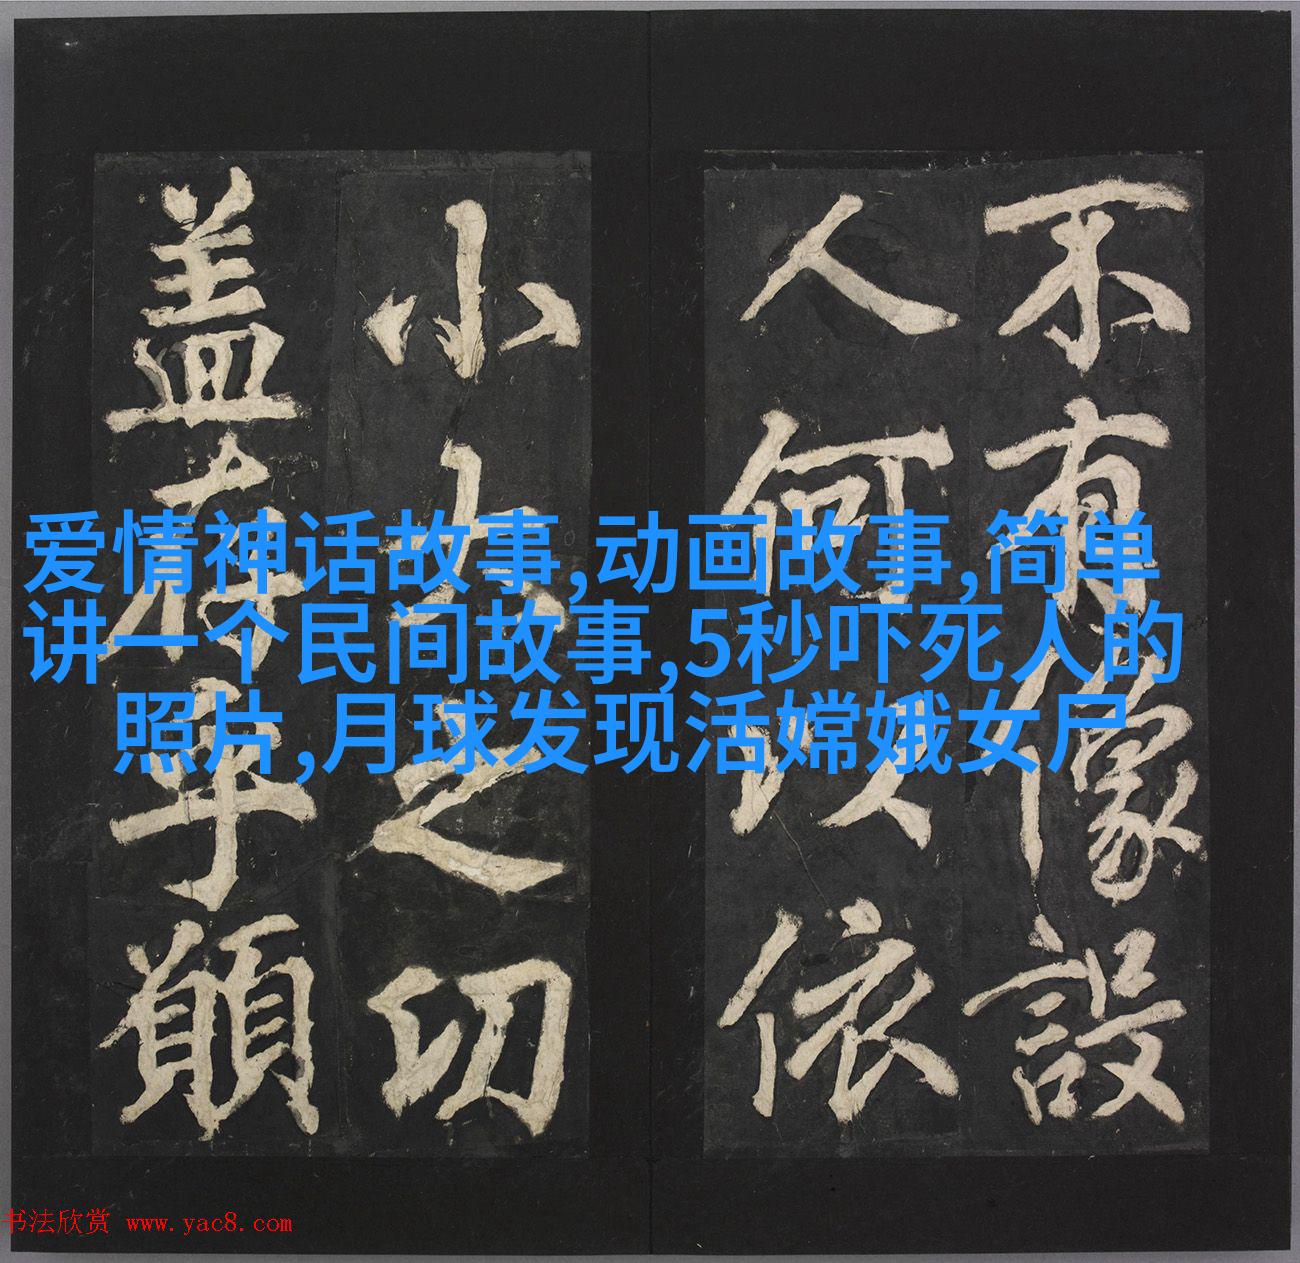 爱情神话故事,动画故事,简单
讲一个民间故事,5秒吓死人的
照片,月球发现活嫦娥女尸
不有像設
人何以依
小大之切
盖存乎願
书法欣赏 www.yac8.com